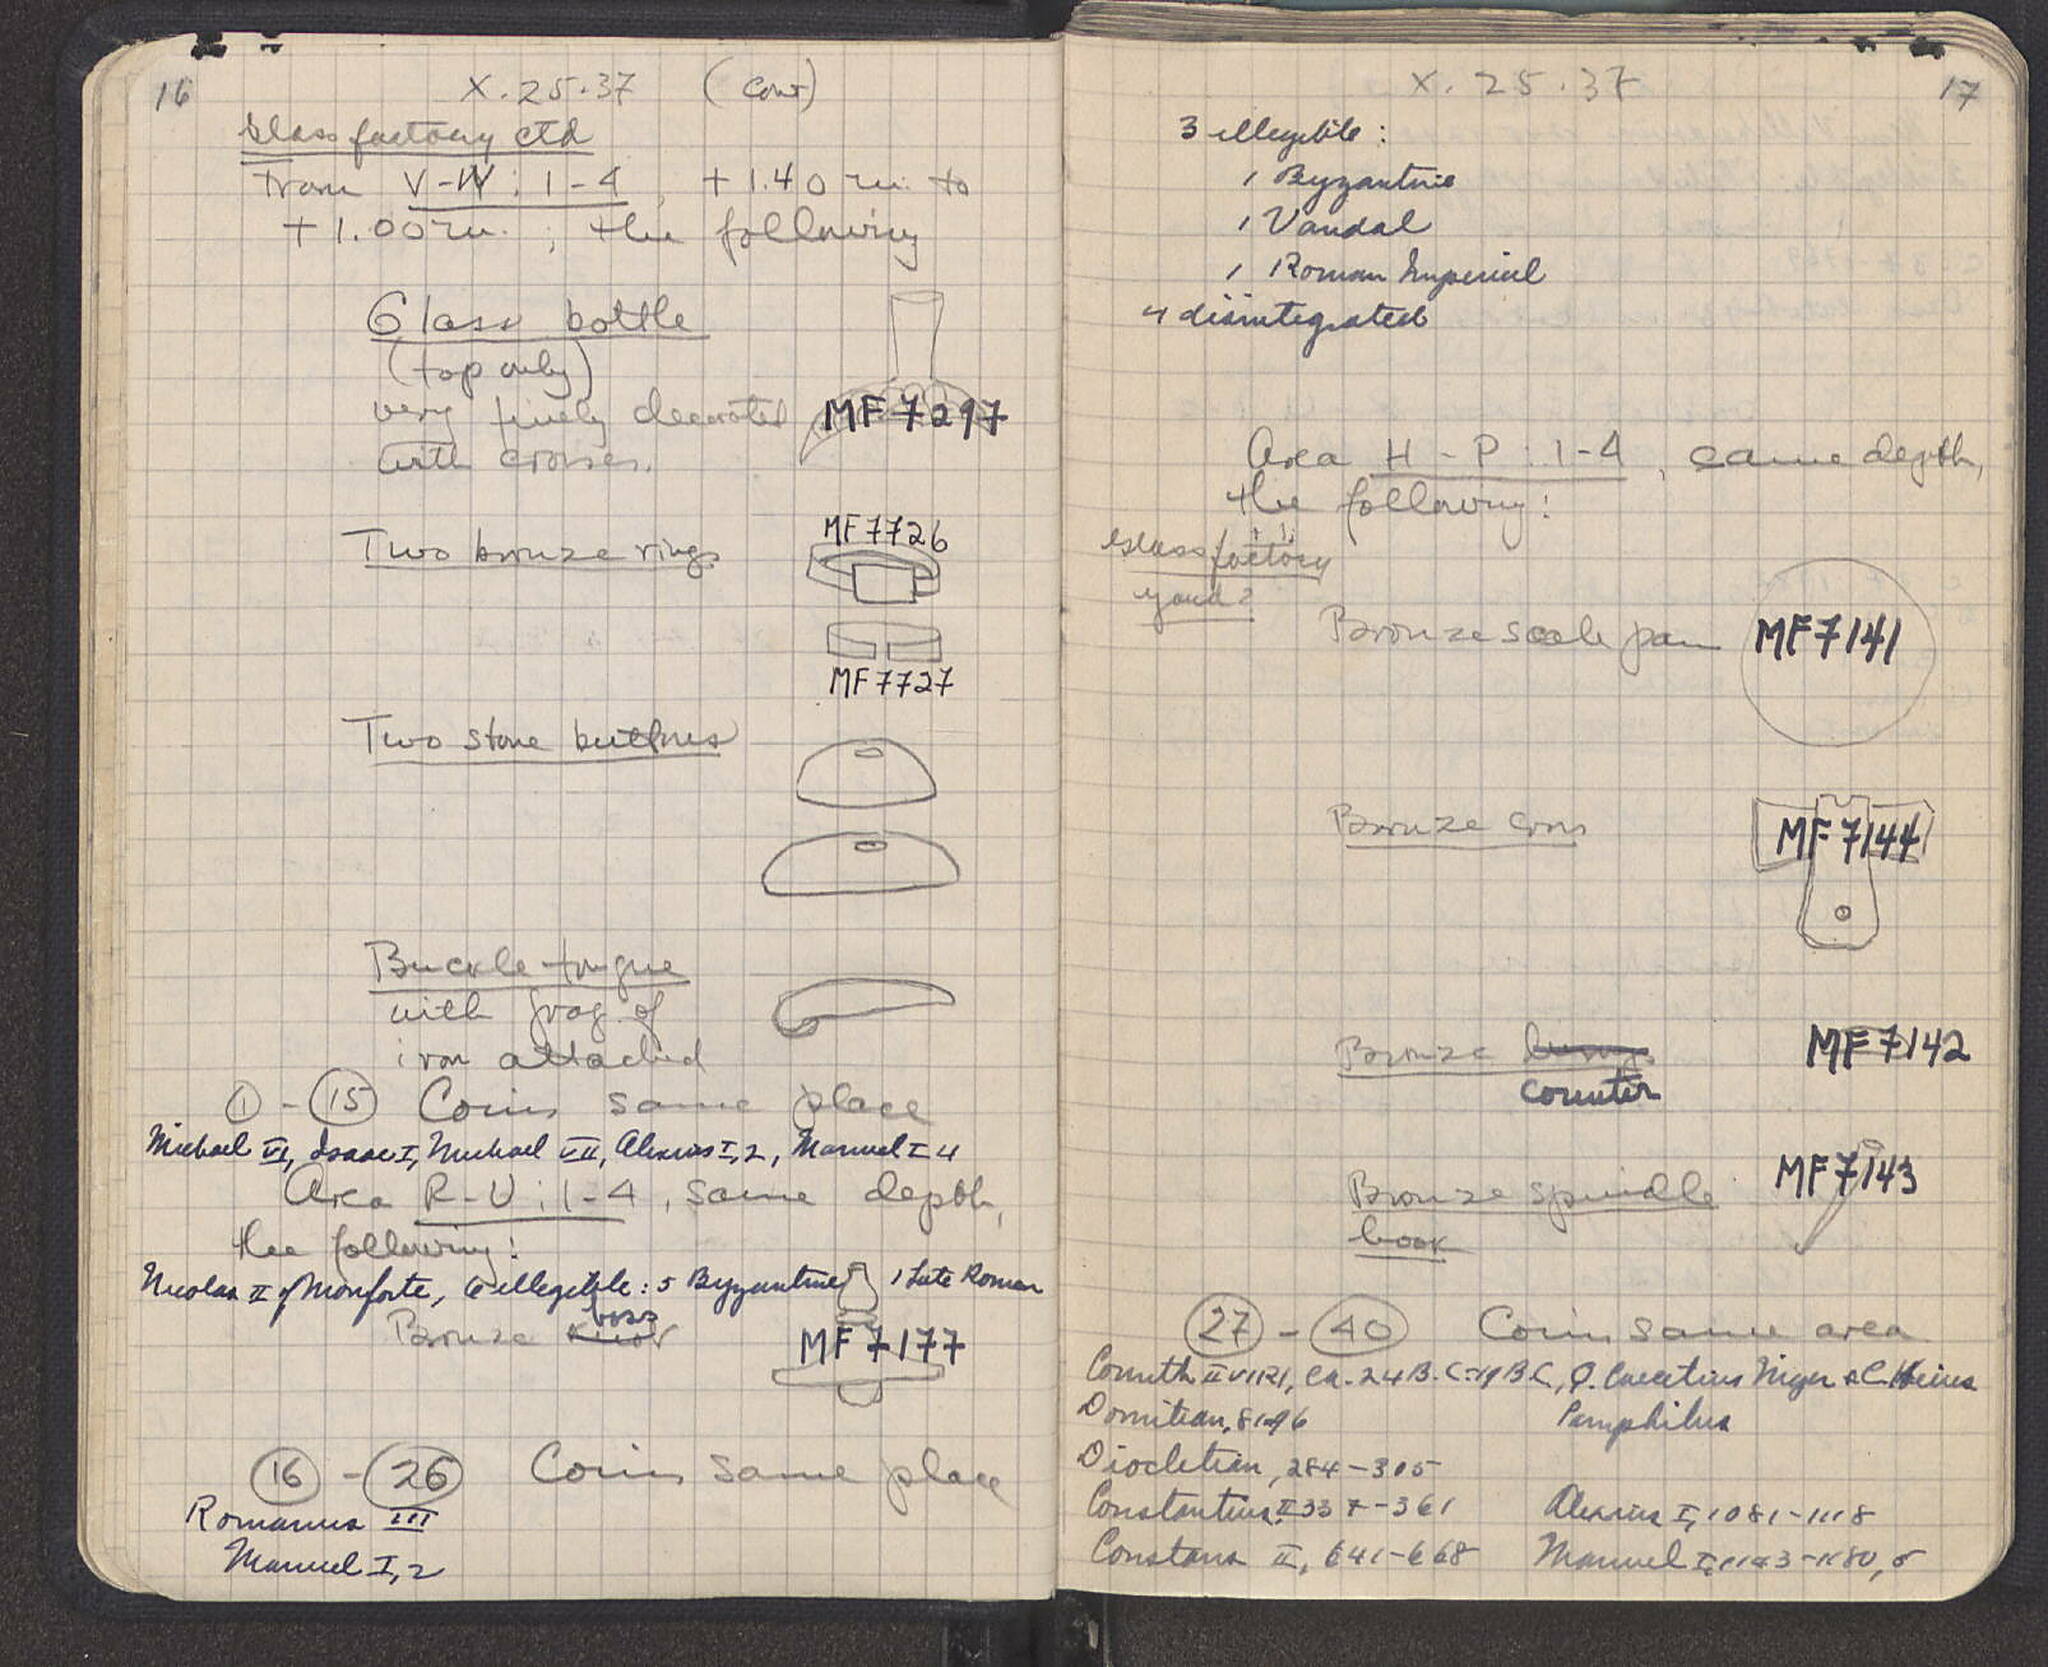 16
X.25.37 (cont)
Glass factory ctd
From V-IV : 1-4, +1.40 m. to
+1.00 m. ; the following
Glass bottle
(top only)
very finely decorated
with crosses.
MF 7297
Two bronze rings
MF 7726
MF 7727
Two stone buttons
Buckle-tongue
with frag. of
iron attached
1 - 15 Coins same place
Michael VI, Isaac I, Michael VII, Alexius I, 2, Manuel I 4
Area R-U : 1-4, same depth,
the following:
Nicolas II of Monforte, 6 illegible: 5 Byzantine 1 Late Roman
boss
Bronze knob
MF 7177
16 - 26 Coins same place
Romanus III
Manuel I, 2
X.25.37
17
3 illegible:
1 Byzantine
1 Vandal
1 Roman Imperial
4 disintegrated
Area H-P : 1-4, same depth,
the following:
Glass factory
yard?
Bronze scale pan
MF 7141
Bronze cross
MF 7144
Bronze
counter
MF 7142
Bronze spindle
hook
MF 7143
27 - 40 Coins same area
Corinth IIVIRI, ca. 24 B.C. B.C, Q. Caecilius Niger & C. Heius
Pamphilus
Domitian, 81-96
Diocletian, 284-305
Constantius II 337-361
Alexius I, 1081-1118
Constans II, 641-668
Manuel I, 1143-1180, 5